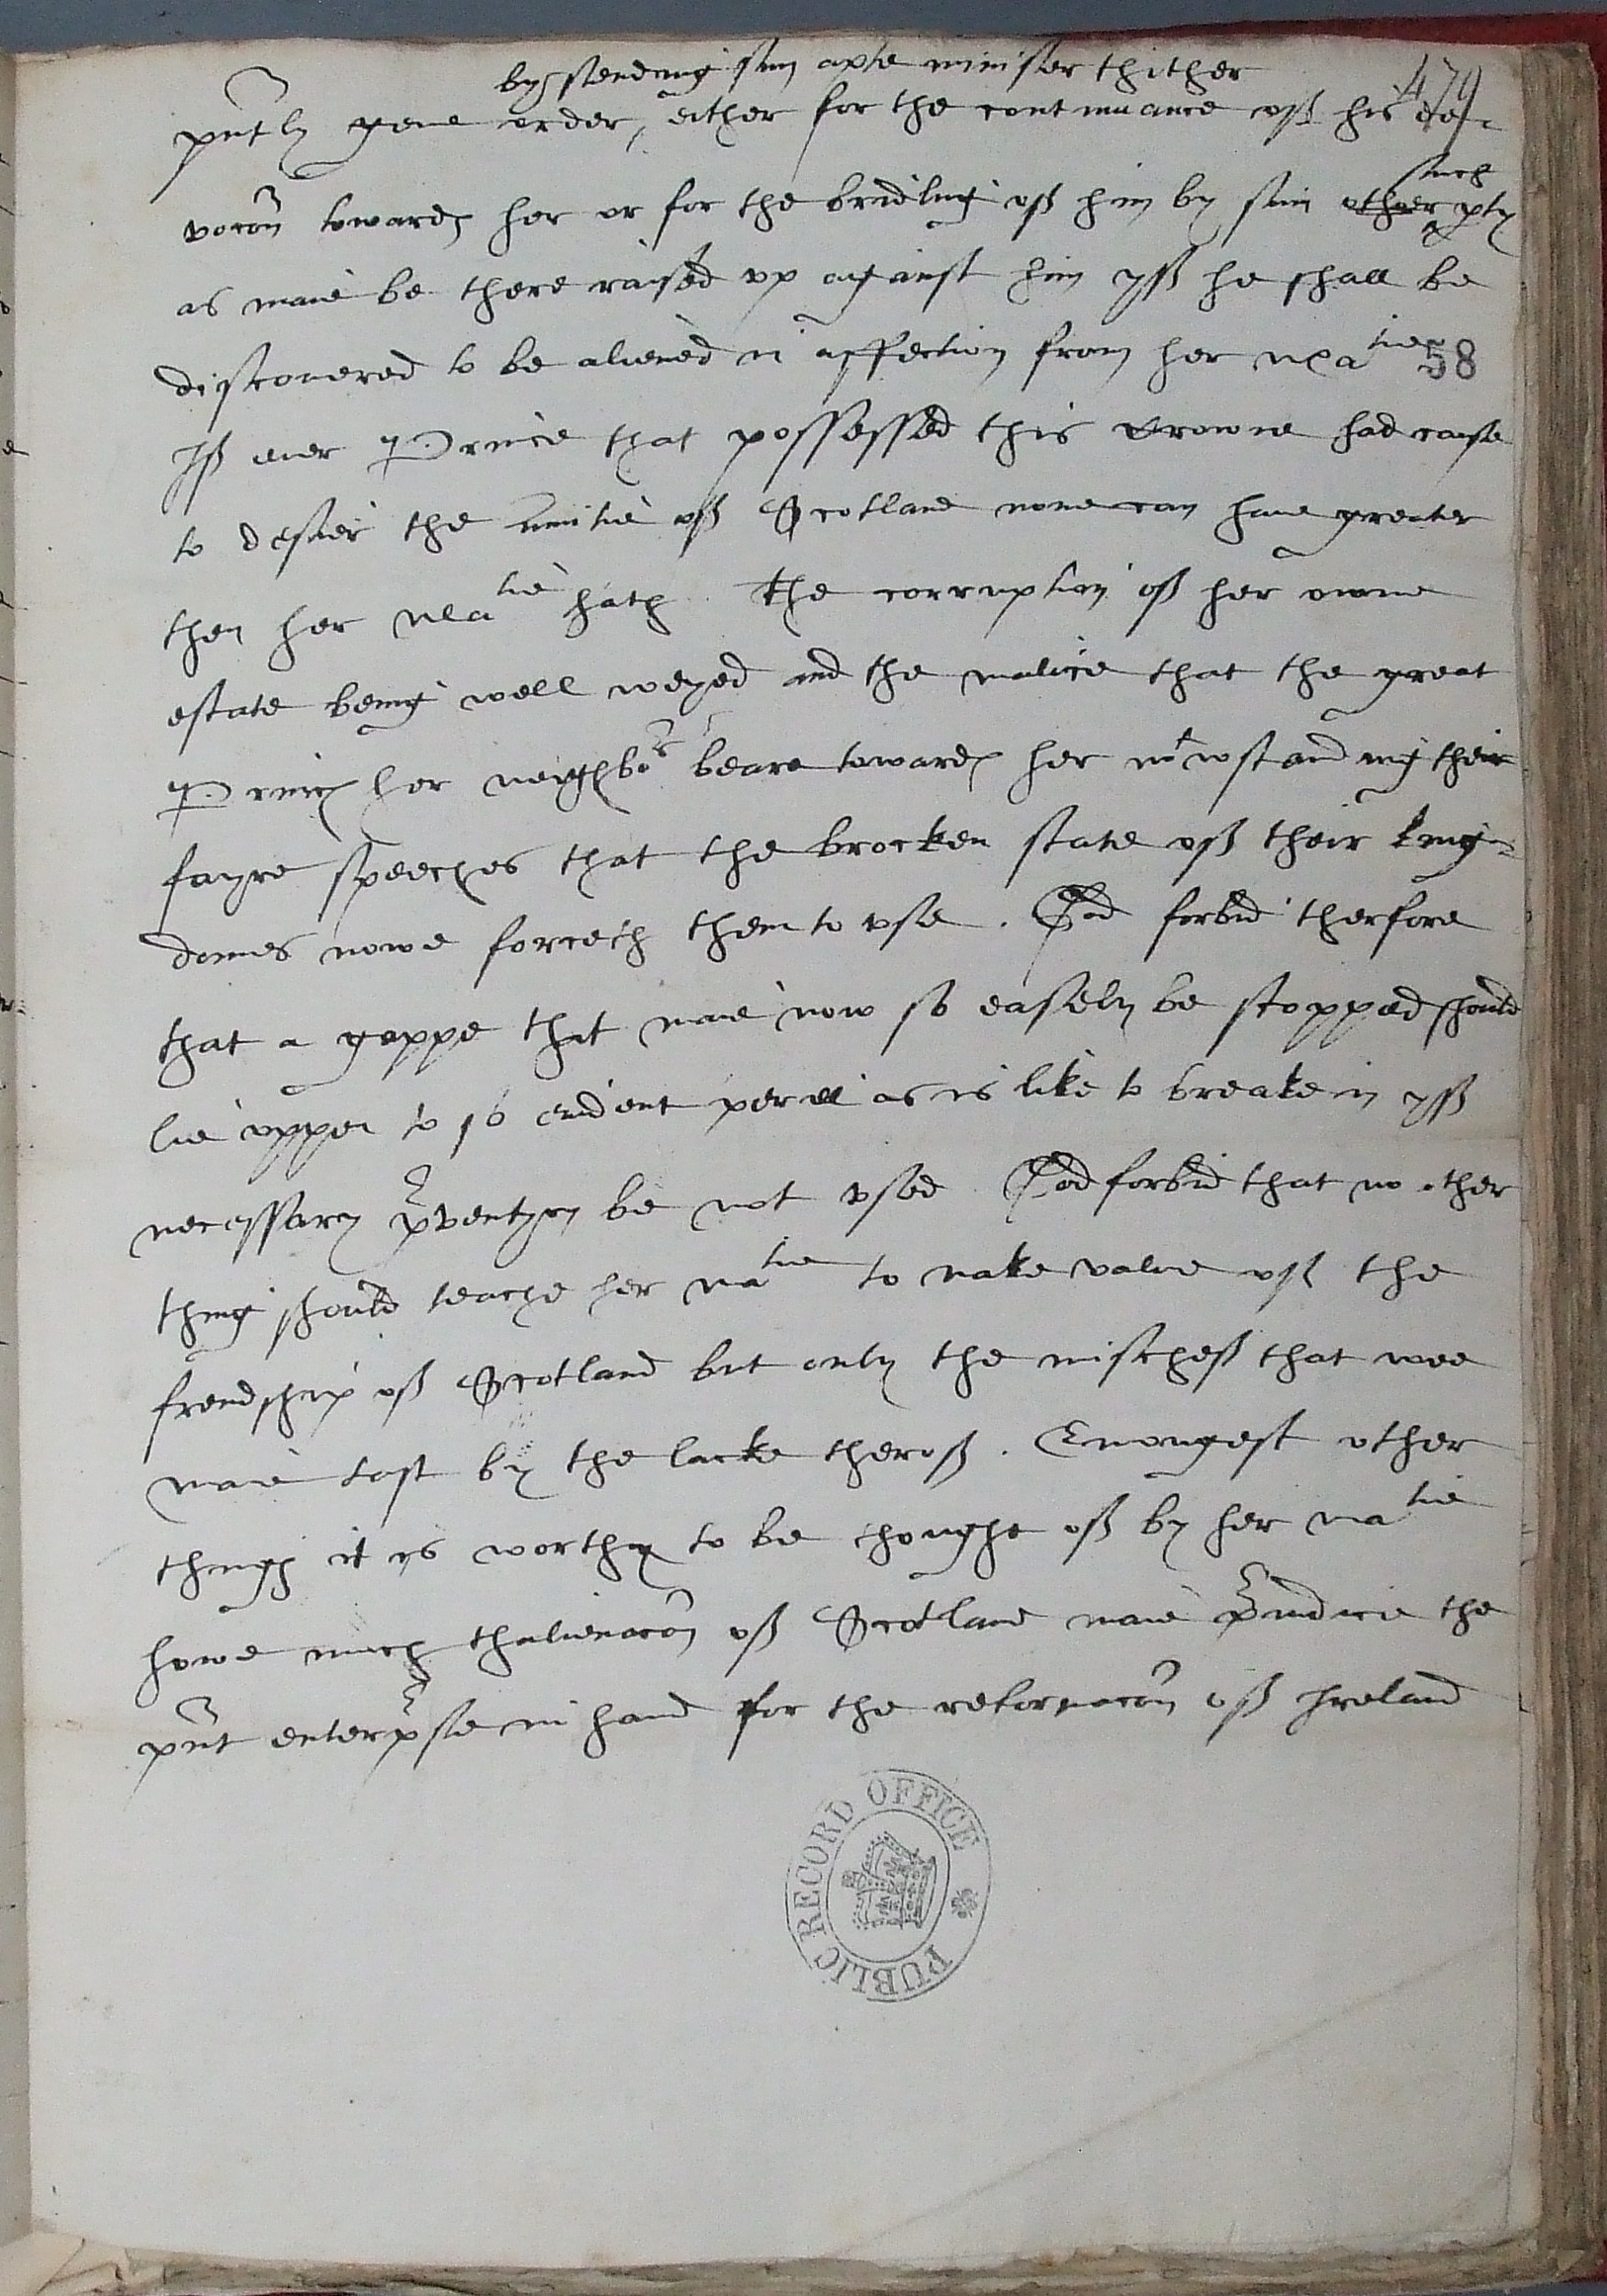 by sending sum apte minister thither
479
pntly geve order, either for the continuance off his de=
vocon towardes her or for the bridling off him by sum other such ptye
as maie be there raised vp against him yff he shall be
discovered to be aliened in affection from her Matie
58
Iff ever Prince that possessed this Crowne had cause
to desier the amitie off Scotland none can have greater
then her Matie hath. The corruption off her owne
estate being well weyed and the malice that the great
Princes her neighbors beare towardes her notwstanding their
fayre speeches that the brocken state off their king=
domes nowe forceth them to vse. God forbid therfore
that a gappe that maie now so easely be stopped should
lie oppen to so evident perill as is like to breake in yff
necessary prventyon be not vsed. God forbid that no other
thing should teache her Matie to make value off the
frendship off Scotland but only the mischeff that wee
maie tast by the lacke theroff. Emongest other
thinges it is worthy to be thought off by her Matie
howe much thalienacon off Scotland maie prudice the
pnt enterprise in hand for the reformacon off Ireland
PUBLIC RECORD OFFICE